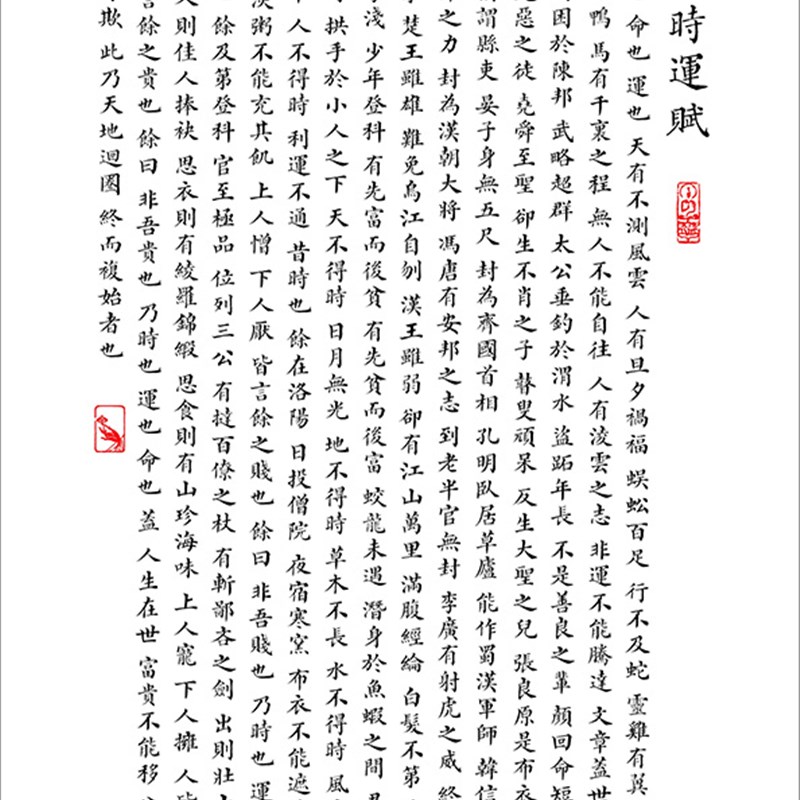 時運賦
命也 運也 天有不測風雲 人有旦夕禍福 蜈蚣百足 行不及蛇 靈雞有翼
鴨 馬有千裏之程 無人不能自往 人有淩雲之志 非運不能騰達 文章蓋世
困於陳邦 武略超群 太公垂釣於渭水 盜跖年長 不是善良之輩 顏回命短
惡之徒 堯舜至聖 卻生不肖之子 瞽叟頑呆 反生大聖之兒 張良原是布衣
謂縣吏 晏子身無五尺 封為齊國首相 孔明臥居草廬 能作蜀漢軍師 韓信
之力 封為漢朝大將 馮唐有安邦之志 到老半官無封 李廣有射虎之威 終
楚王雖雄 難免烏江自刎 漢王雖弱 卻有江山萬里 滿腹經綸 白髮不第
淺 少年登科 有先富而後貧 有先貧而後富 蛟龍未遇 潛身於魚蝦之間
拱手於小人之下 天不得時 日月無光 地不得時 草木不長 水不得時 風
人不得時 利運不通 昔時也 餘在洛陽 日投僧院 夜宿寒窯 布衣不能遮
粥不能充其飢 上人憎 下人厭 皆言餘之賤也 餘曰 非吾賤也 乃時也 運
餘及第登科 官至極品 位列三公 有撻百僚之杖 有斬鄙吝之劍 出則壯
則佳人捧袂 思衣則有綾羅錦緞 思食則有山珍海味 上人寵 下人擁 人皆
言餘之貴也 餘曰 非吾貴也 乃時也 運也 命也 蓋 人生在世 富貴不能移
欺 此乃天地迴圈 終而複始者也